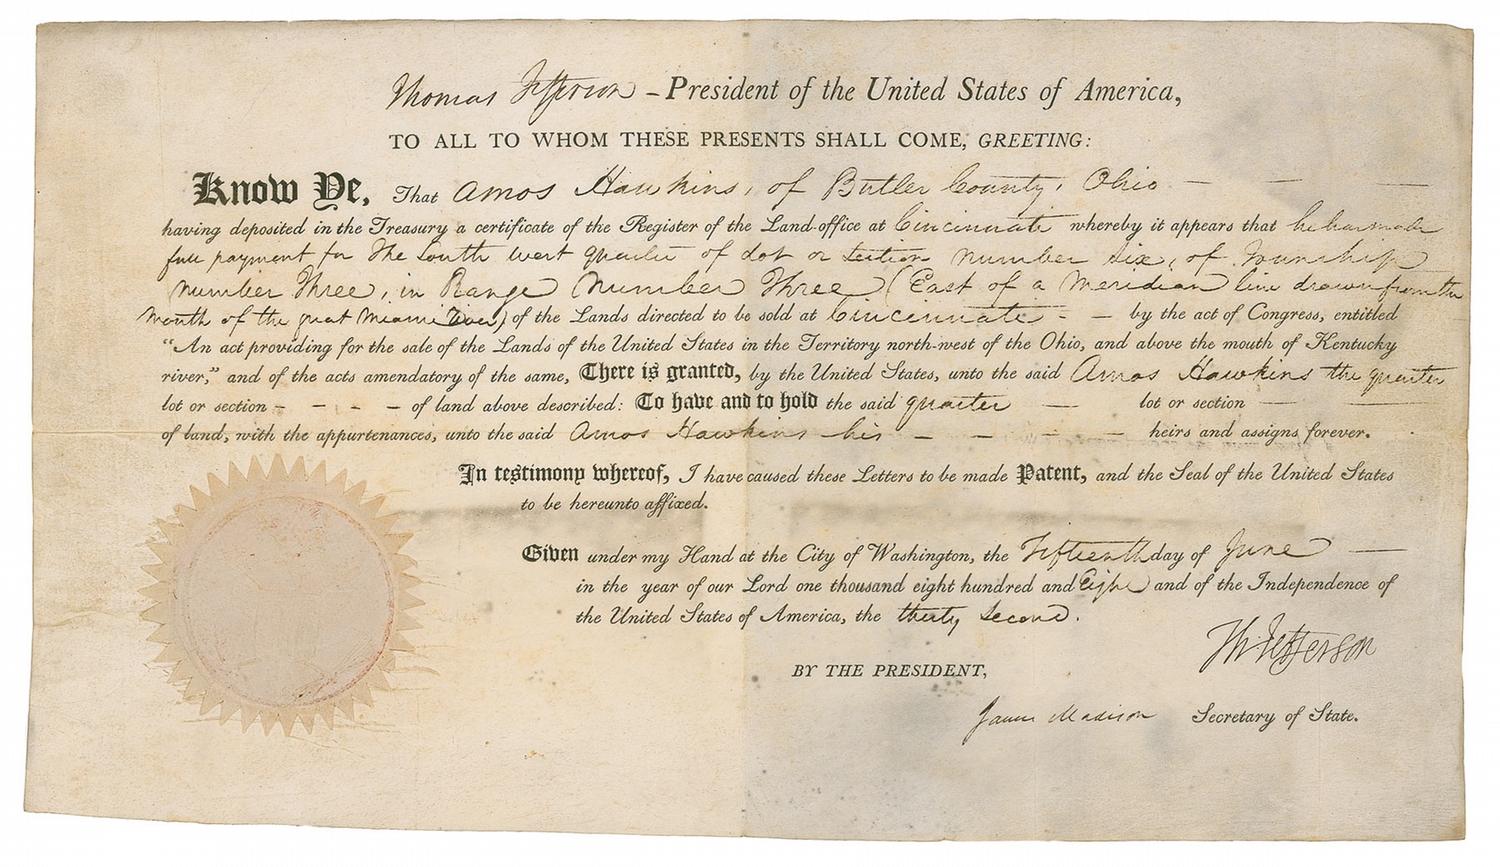 Thomas Jefferson – President of the United States of America,
TO ALL TO WHOM THESE PRESENTS SHALL COME, GREETING:
Know Ye, That Amos Hawkins, of Butler County, Ohio — — —
having deposited in the Treasury a certificate of the Register of the Land-office at Cincinnati whereby it appears that he has made
full payment for the South west quarter of lot or section number six, of Township
number Three, in Range Number Three (East of a Meridian line drawn from the
mouth of the great Miami River) of the Lands directed to be sold at Cincinnati - - by the act of Congress, entitled
“An act providing for the sale of the Lands of the United States in the Territory north-west of the Ohio, and above the mouth of Kentucky
river,” and of the acts amendatory of the same, There is granted, by the United States, unto the said Amos Hawkins the quarter
lot or section - - - - of land above described: To have and to hold the said quarter — lot or section —
of land, with the appurtenances, unto the said Amos Hawkins his - - - - - heirs and assigns forever.
In testimony whereof, I have caused these Letters to be made Patent, and the Seal of the United States
to be hereunto affixed.
Given under my Hand at the City of Washington, the Fifteenth day of June —
in the year of our Lord one thousand eight hundred and Eight and of the Independence of
the United States of America, the thirty second.
Th: Jefferson
BY THE PRESIDENT,
James Madison Secretary of State.